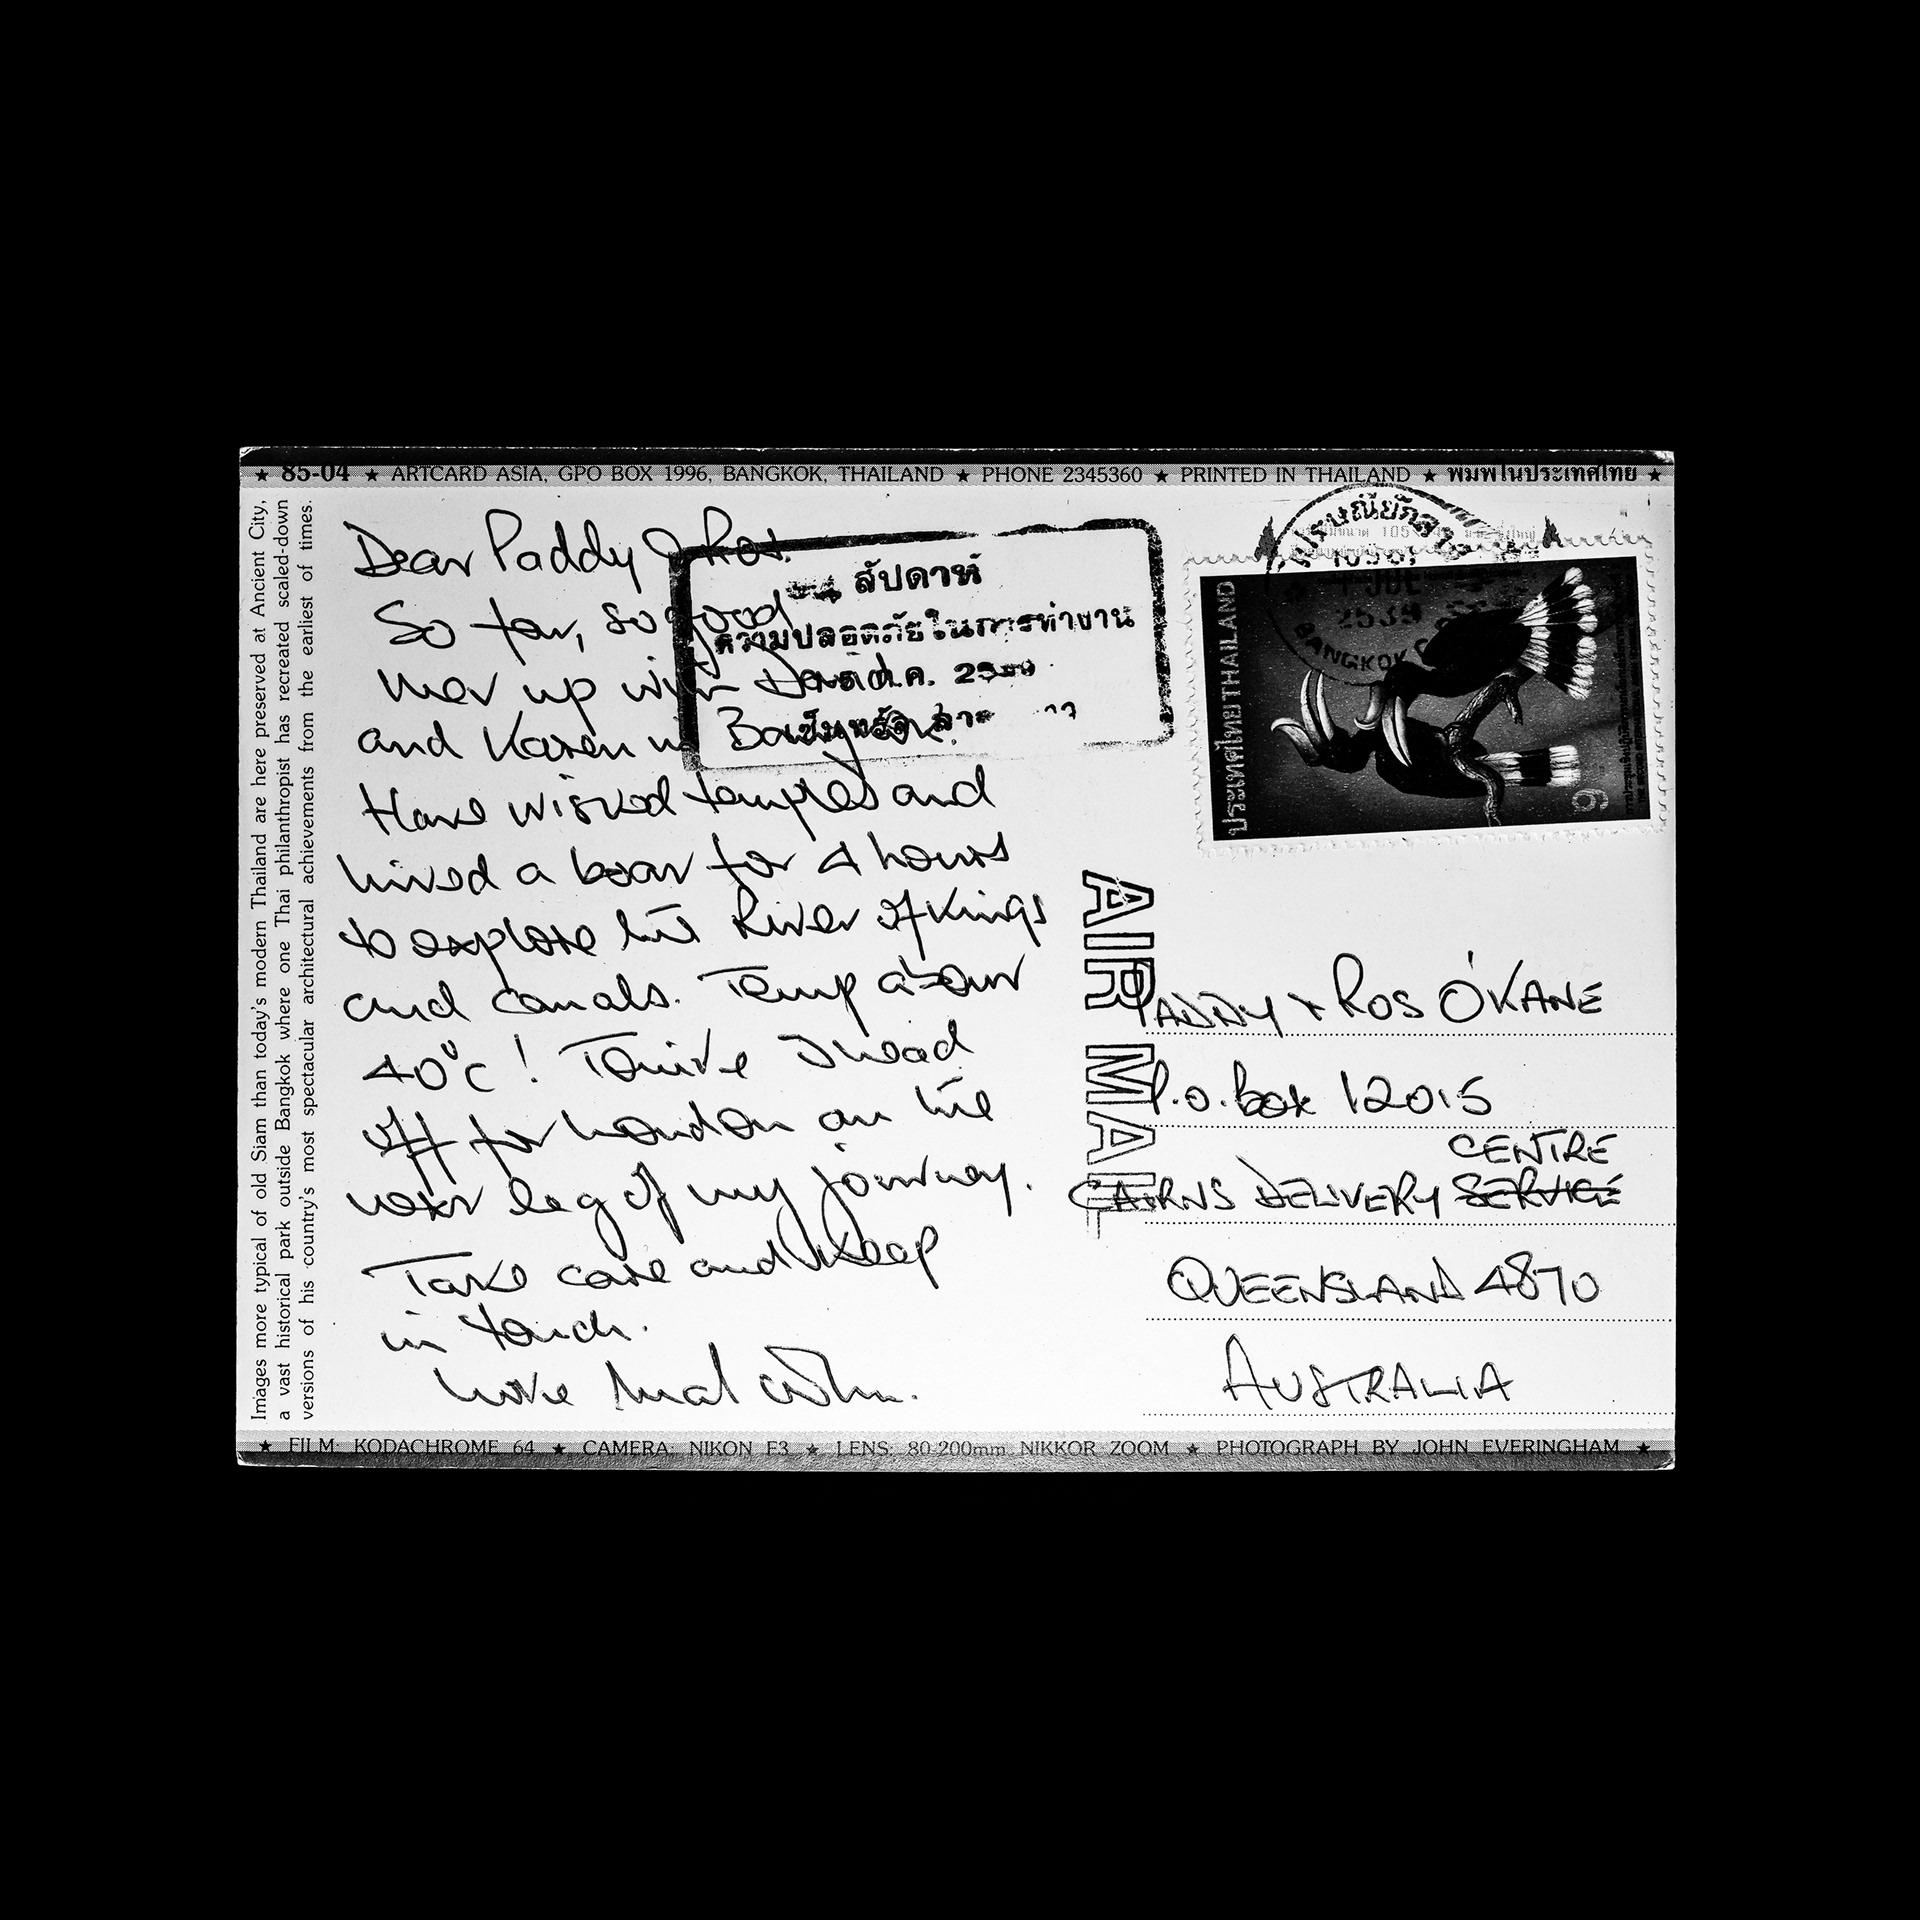 ★ 85-04 ★ ARTCARD ASIA, GPO BOX 1996, BANGKOK, THAILAND ★ PHONE 2345360 ★ PRINTED IN THAILAND ★ พิมพ์ในประเทศไทย ★
Images more typical of old Siam than today's modern Thailand are here preserved at Ancient City,
a vast historical park outside Bangkok where one Thai philanthropist has recreated scaled-down
versions of his country's most spectacular architectural achievements from the earliest of times.
Dear Paddy & Ros.
So far, so good
Met up with David
and Karen in Bangkok.
Have visited temples and
hired a boat for 4 hours
to explore the River of Kings
and canals. Temp about
40°C! Tonite I head
off for London on the
next leg of my journey.
Take care and keep
in touch.
Love Malcolm.
สัปดาห์
ความปลอดภัยในการทำงาน
ประเทศไทย THAILAND
9
BANGKOK
2539
AIR MAIL
PADDY + ROS O'KANE
P.O. Box 12015
CENTRE
CAIRNS DELIVERY SERVICE
QUEENSLAND 4870
AUSTRALIA
★ FILM: KODACHROME 64 ★ CAMERA: NIKON F3 ★ LENS: 80-200mm NIKKOR ZOOM ★ PHOTOGRAPH BY JOHN EVERINGHAM ★